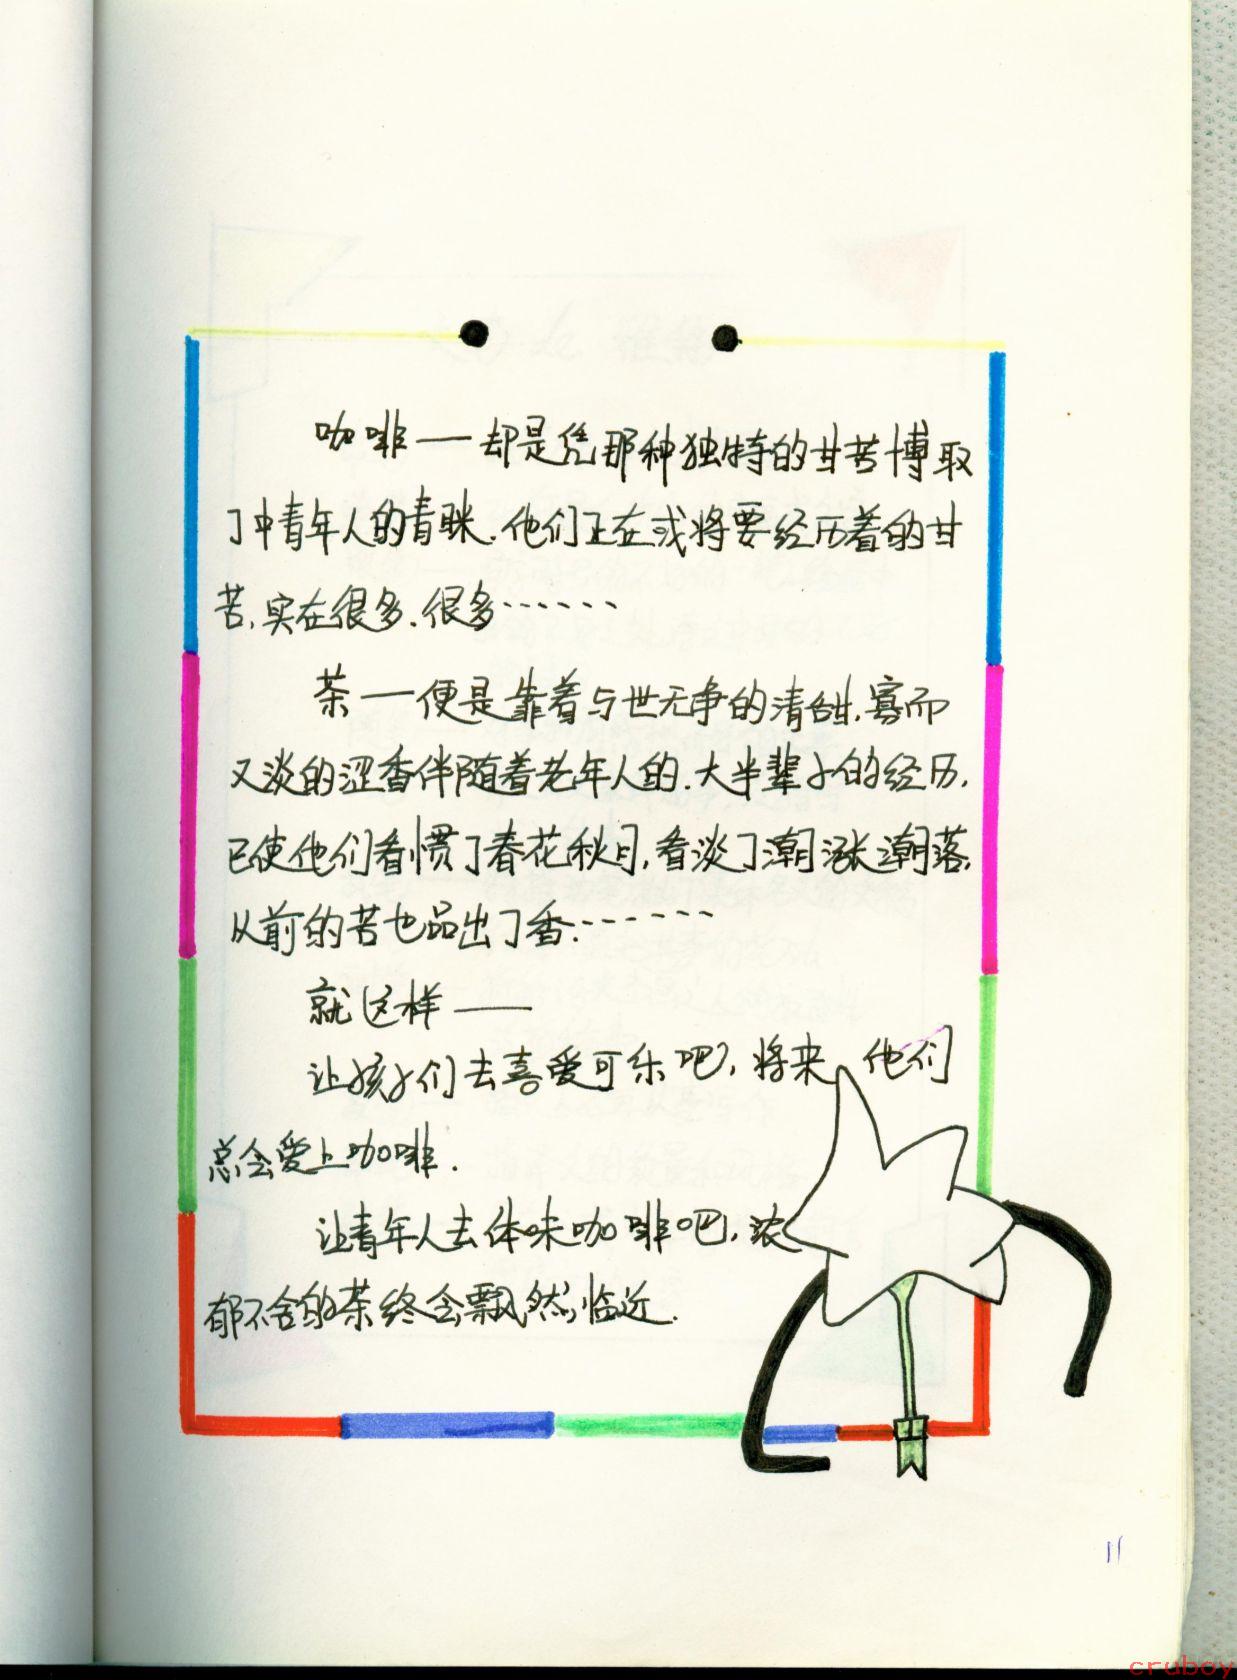 咖啡——却是凭那种独特的甘苦博取
了中青年人的青睐.他们正在或将要经历着的甘
苦,实在很多.很多……
茶——便是靠着与世无争的清甜,寡而
又淡的涩香伴随着老年人的.大半辈子的经历,
已使他们看惯了春花秋月,看淡了潮涨潮落,
从前的苦也品出了香.……
就这样——
让孩子们去喜爱可乐吧,将来,他们
总会爱上咖啡.
让青年人去体味咖啡吧,浓
郁不舍的茶终会飘然临近.
11
cruboy